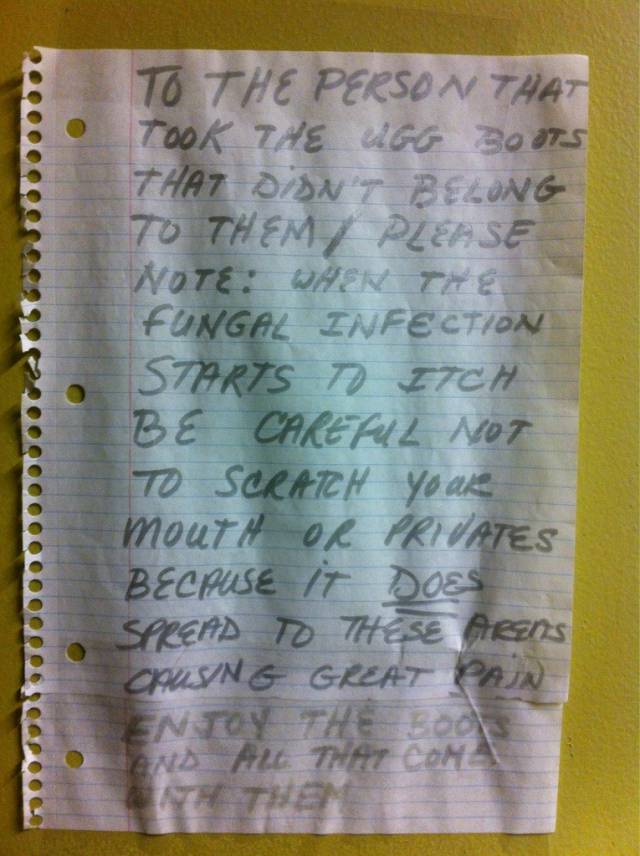 TO THE PERSON THAT
TOOK THE UGG BOOTS
THAT DIDN'T BELONG
TO THEM / PLEASE
NOTE: WHEN THE
FUNGAL INFECTION
STARTS TO ITCH
BE CAREFUL NOT
TO SCRATCH YOUR
MOUTH OR PRIVATES
BECAUSE IT DOES
SPREAD TO THESE AREAS
CAUSING GREAT PAIN
ENJOY THE BOOTS
AND ALL THAT COME
WITH THEM